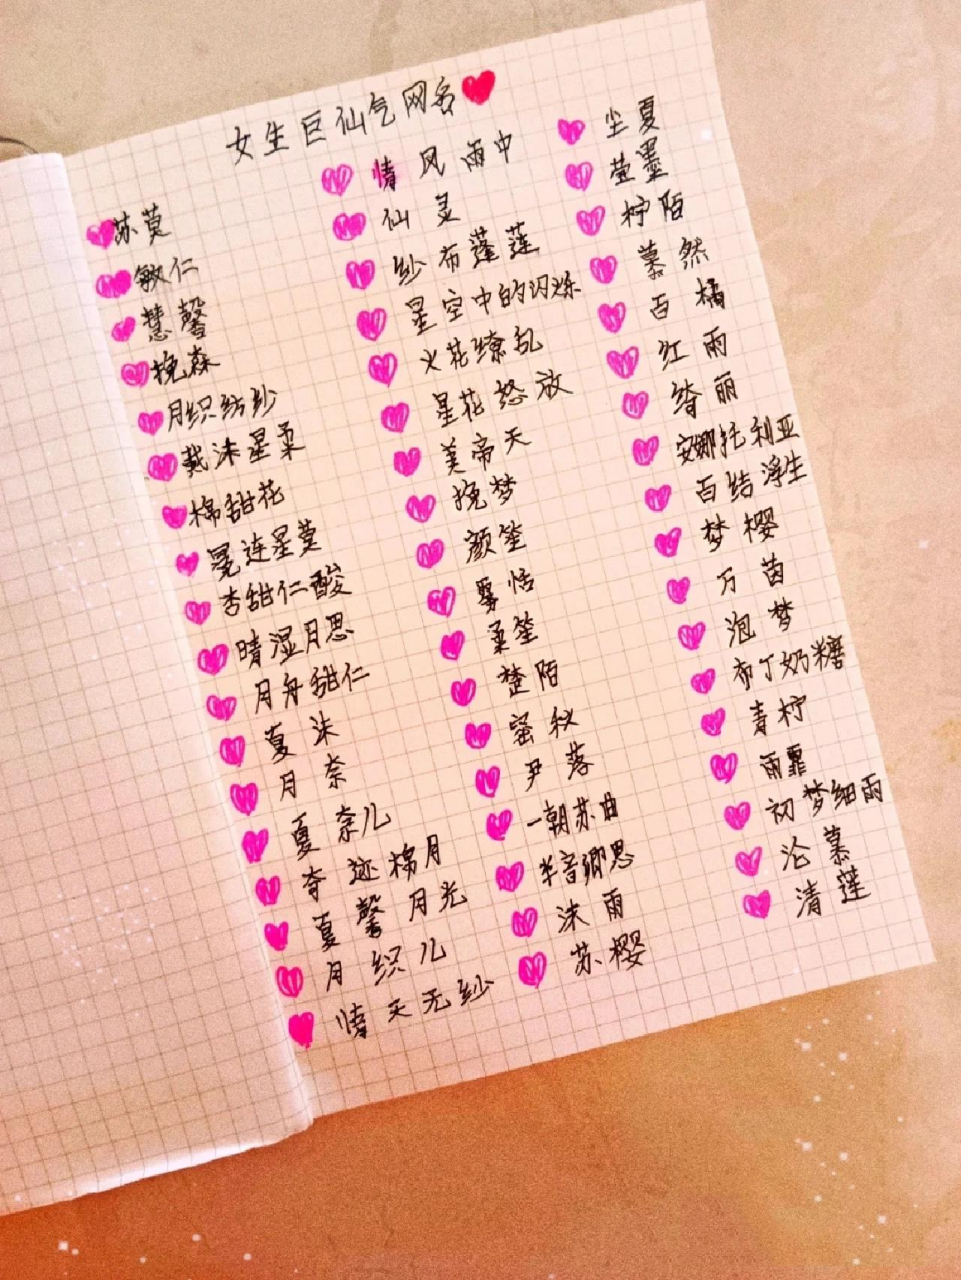 女生巨仙气网名
苏莫
敏仁
慧馨
挽森
月织纺纱
戴沫星柔
棉甜花
冕连星莫
杏甜仁酸
晴湿月思
月舟甜仁
夏沫
月奈
夏奈儿
夸迹棉月
夏馨月光
月织儿
情天无纱
情风雨中
仙灵
纱布蓬莲
星空中的闪烁
火花缭乱
星花怒放
美帝天
挽梦
颜笙
柔笙
楚陌
尹落
一朝苏曲
半音卿思
沫雨
苏樱
尘夏
萤墨
柠陌
慕然
百橘
红雨
绮丽
安娜托利亚
百结浮生
梦樱
万茵
泡梦
布丁奶糖
青柠
雨霏
初梦细雨
沦慕
清莲